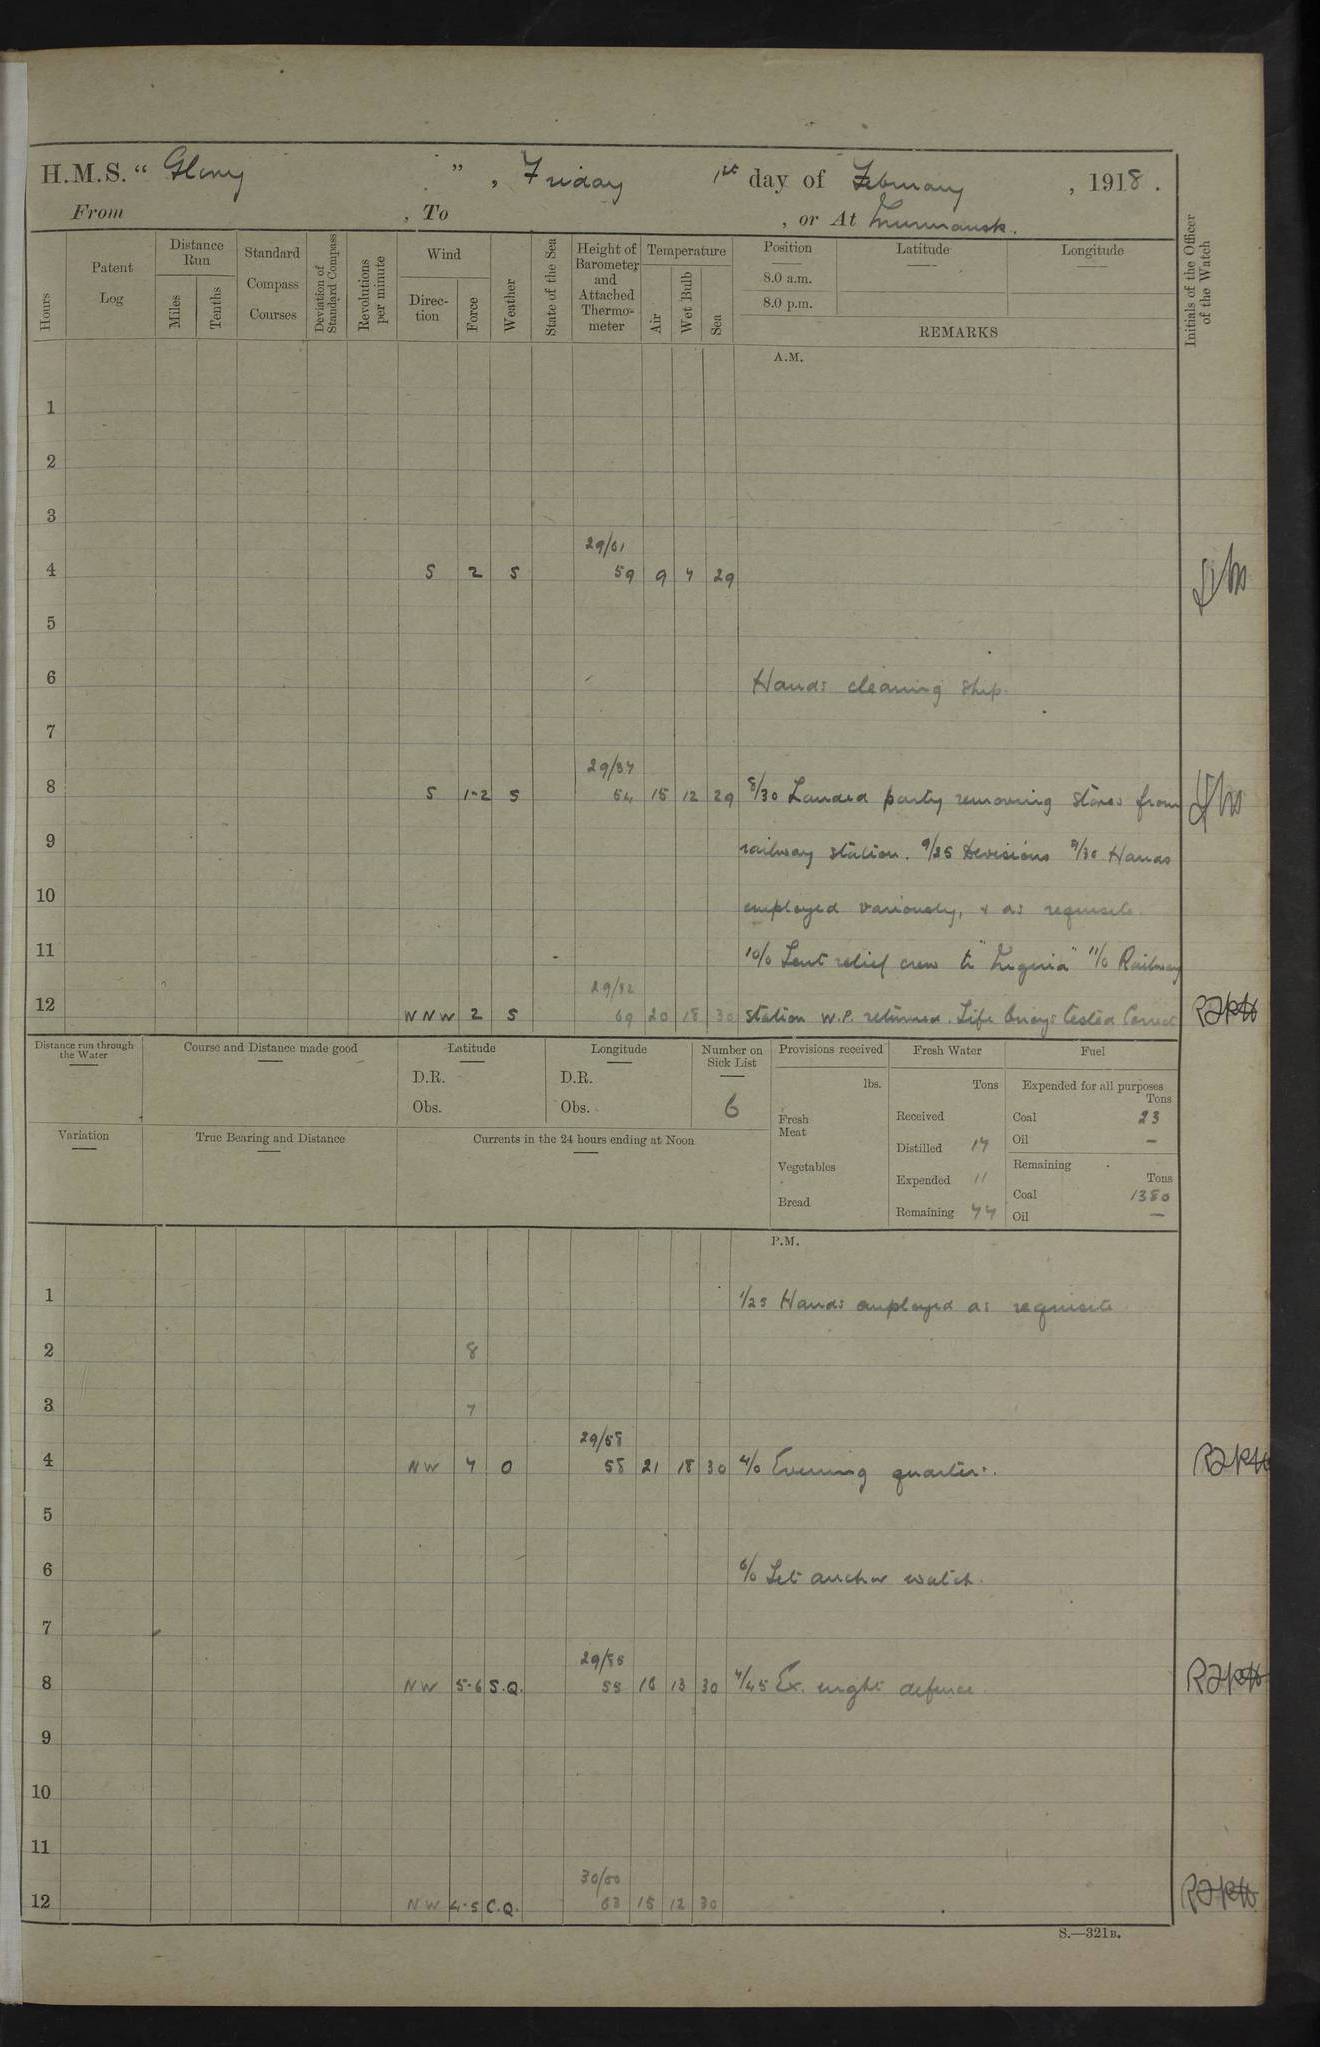 H.M.S. “ Glory ” , Friday 1st day of February , 1918 .
From , To , or At Murmansk.
Hours
Patent Log
Distance Run
Miles
Tenths
Standard Compass Courses
Deviation of Standard Compass
Revolutions per minute
Wind
Direc-tion
Force
Weather
State of the Sea
Height of Barometer and Attached Thermo-meter
Temperature
Air
Wet Bulb
Sea
Position
8.0 a.m.
8.0 p.m.
Latitude
Longitude
REMARKS
Initials of the Officer of the Watch
A.M.
1
2
3
29/61
4 S 2 S 59 9 7 29
5
6 Hands cleaning ship.
7
29/37
8 S 1-2 S 54 15 12 29 8/30 Landed party removing stores from
9 railway station. 9/25 Divisions 9/30 Hands
10 employed variously, & as requisite.
11 10/0 Sent relief crew to "Nigeria" 11/0 Railway
29/32
12 WNW 2 S 69 20 18 30 station W.P. returned. Life buoys tested Correct
Distance run through the Water
Course and Distance made good
Latitude
D.R.
Obs.
Longitude
D.R.
Obs.
Number on Sick List
6
Provisions received
lbs.
Fresh Meat
Vegetables
Bread
Fresh Water
Tons
Received
Distilled 17
Expended 11
Remaining 77
Fuel
Expended for all purposes
Tons
Coal 23
Oil —
Remaining
Tons
Coal 1380
Oil —
Variation
True Bearing and Distance
Currents in the 24 hours ending at Noon
P.M.
1 1/25 Hands employed as requisite
2 8
3 7
29/58
4 NW 7 O 58 21 18 30 4/0 Evening quarters.
5
6 6/0 Set anchor watch.
7
29/88
8 NW 5-6 S.Q. 55 18 13 30 7/45 Ex. night defence
9
10
11
30/00
12 NW 4-5 C.Q. 63 15 12 30
S.—321B.